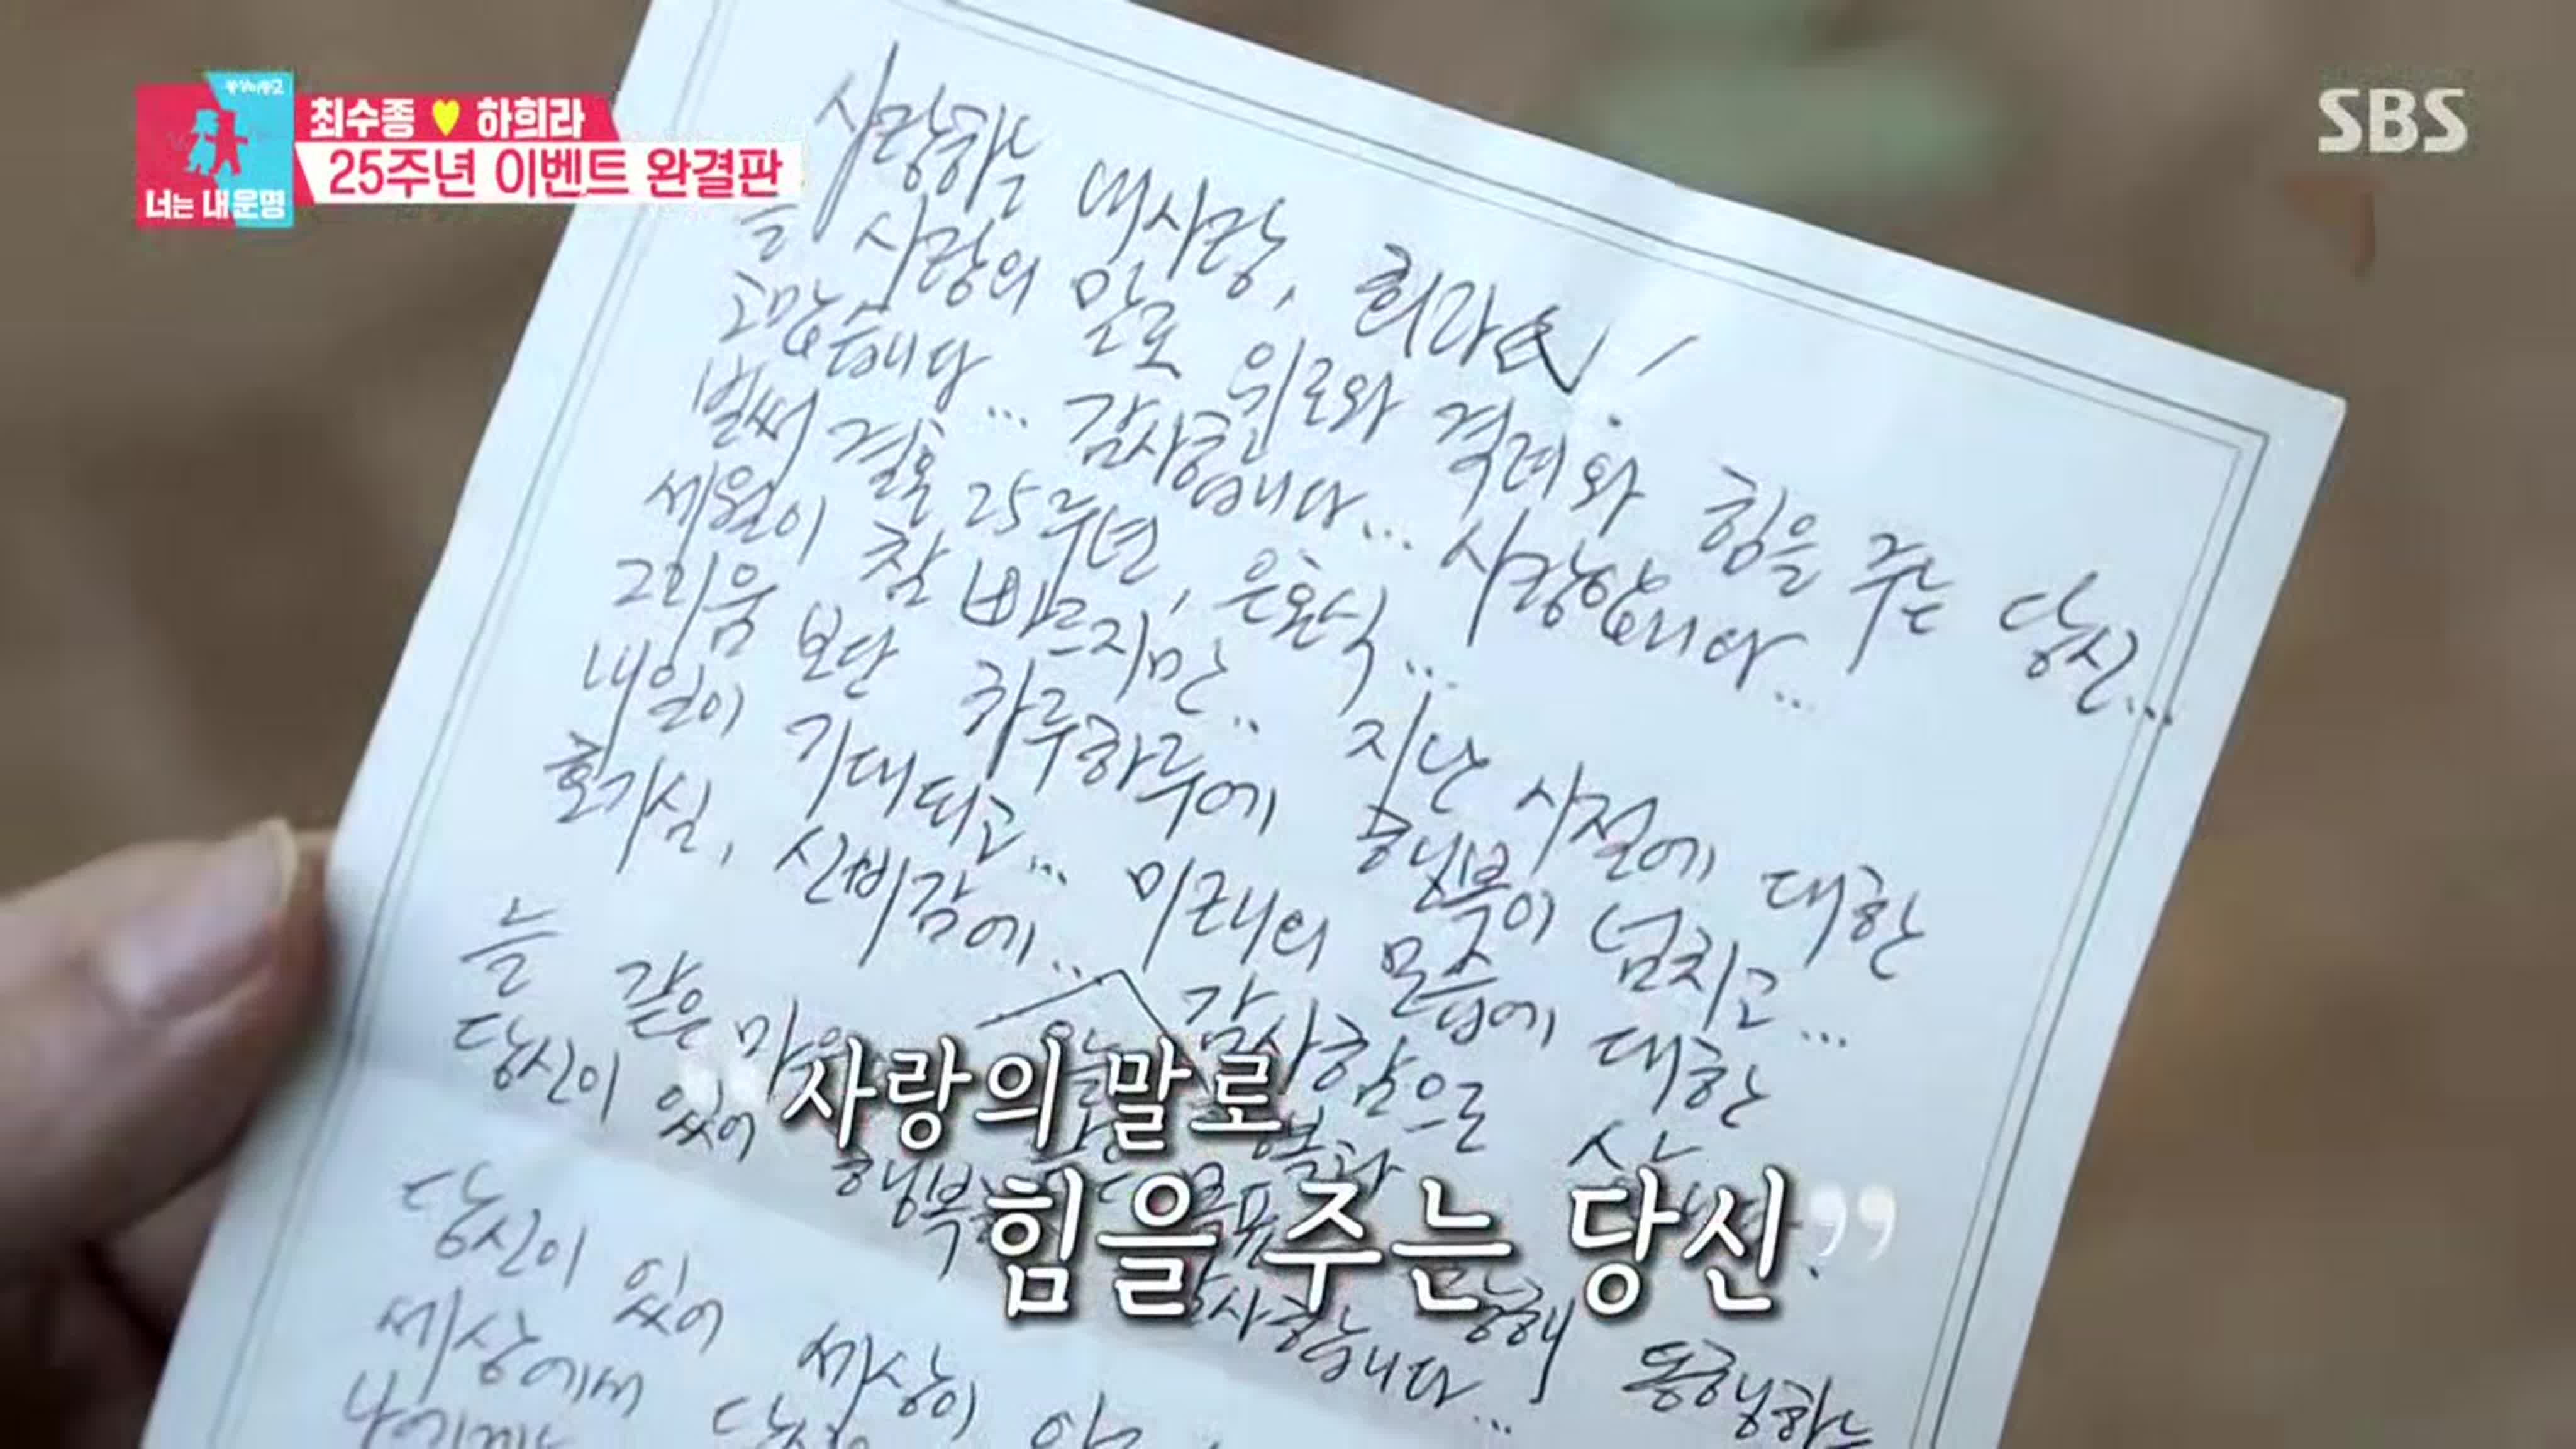 동상이몽2
너는 내 운명
최수종 ♥ 하희라
25주년 이벤트 완결판
SBS
사랑하는 내사랑, 희라氏!
늘 사랑의 말로 위로와 격려와 힘을 주는 당신...
고맙습니다... 감사합니다... 사랑합니다...
벌써 결혼 25주년, 은혼식...
세월이 참 빠르지만.. 지난 시절에 대한
그리움 보단 하루하루에 행복이 넘치고...
내일이 기대되고... 미래의 모습에 대한
호기심, 신비감에... 감사함으로
늘 같은 마음
당신이 있어 행복
감사합니다... 동행하는
당신이 있어 세상이
세상에서
“사랑의 말로
힘을 주는 당신”